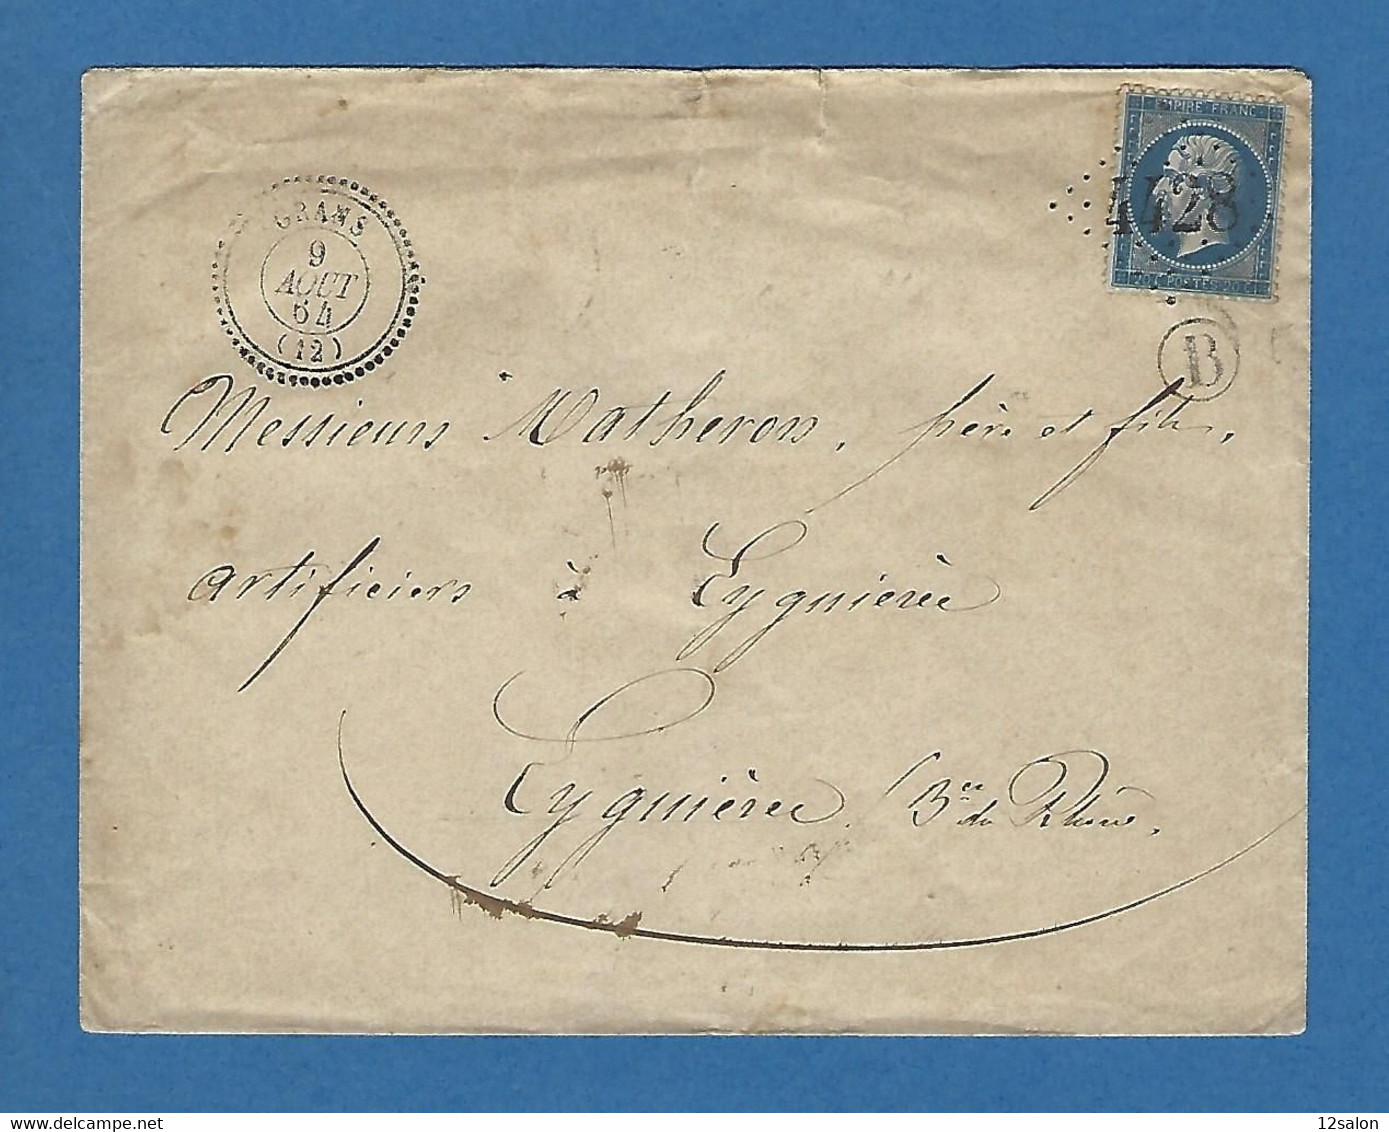 EMPIRE FRANC
4428
20 C POSTES 20 C
B
GRANS
9
AOUT
64
(12)
Messieurs Matheron, père et fils,
artificiers à Eyguièrec
Eyguièrec, (Bces du Rhône,
12salon